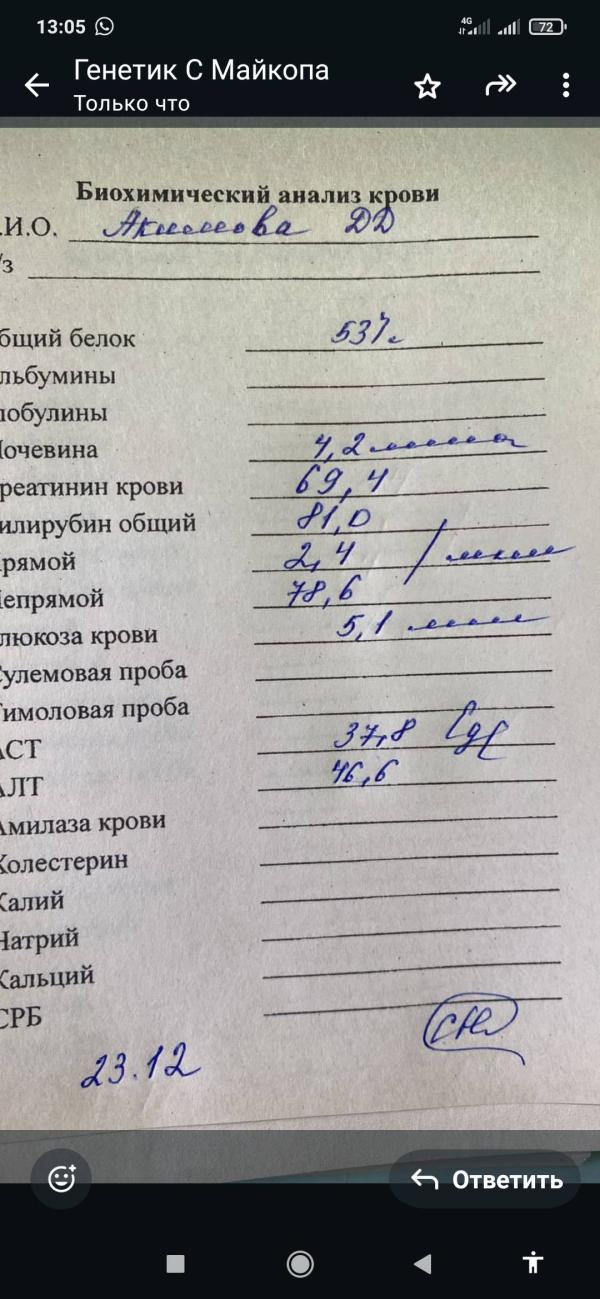 13:05
4G
72
Генетик С Майкопа
Только что
Биохимический анализ крови
.И.О. Акимова ДД
/з
бщий белок 53 г/л
льбумины
лобулины
Мочевина 4,2
реатинин крови 69,4
илирубин общий 81,0
рямой 2,4
Непрямой 78,6
люкоза крови 5,1
Сулемовая проба
Тимоловая проба
АСТ 37,8
АЛТ 46,6
Амилаза крови
Холестерин
Калий
Натрий
Кальций
СРБ
23.12
Ответить